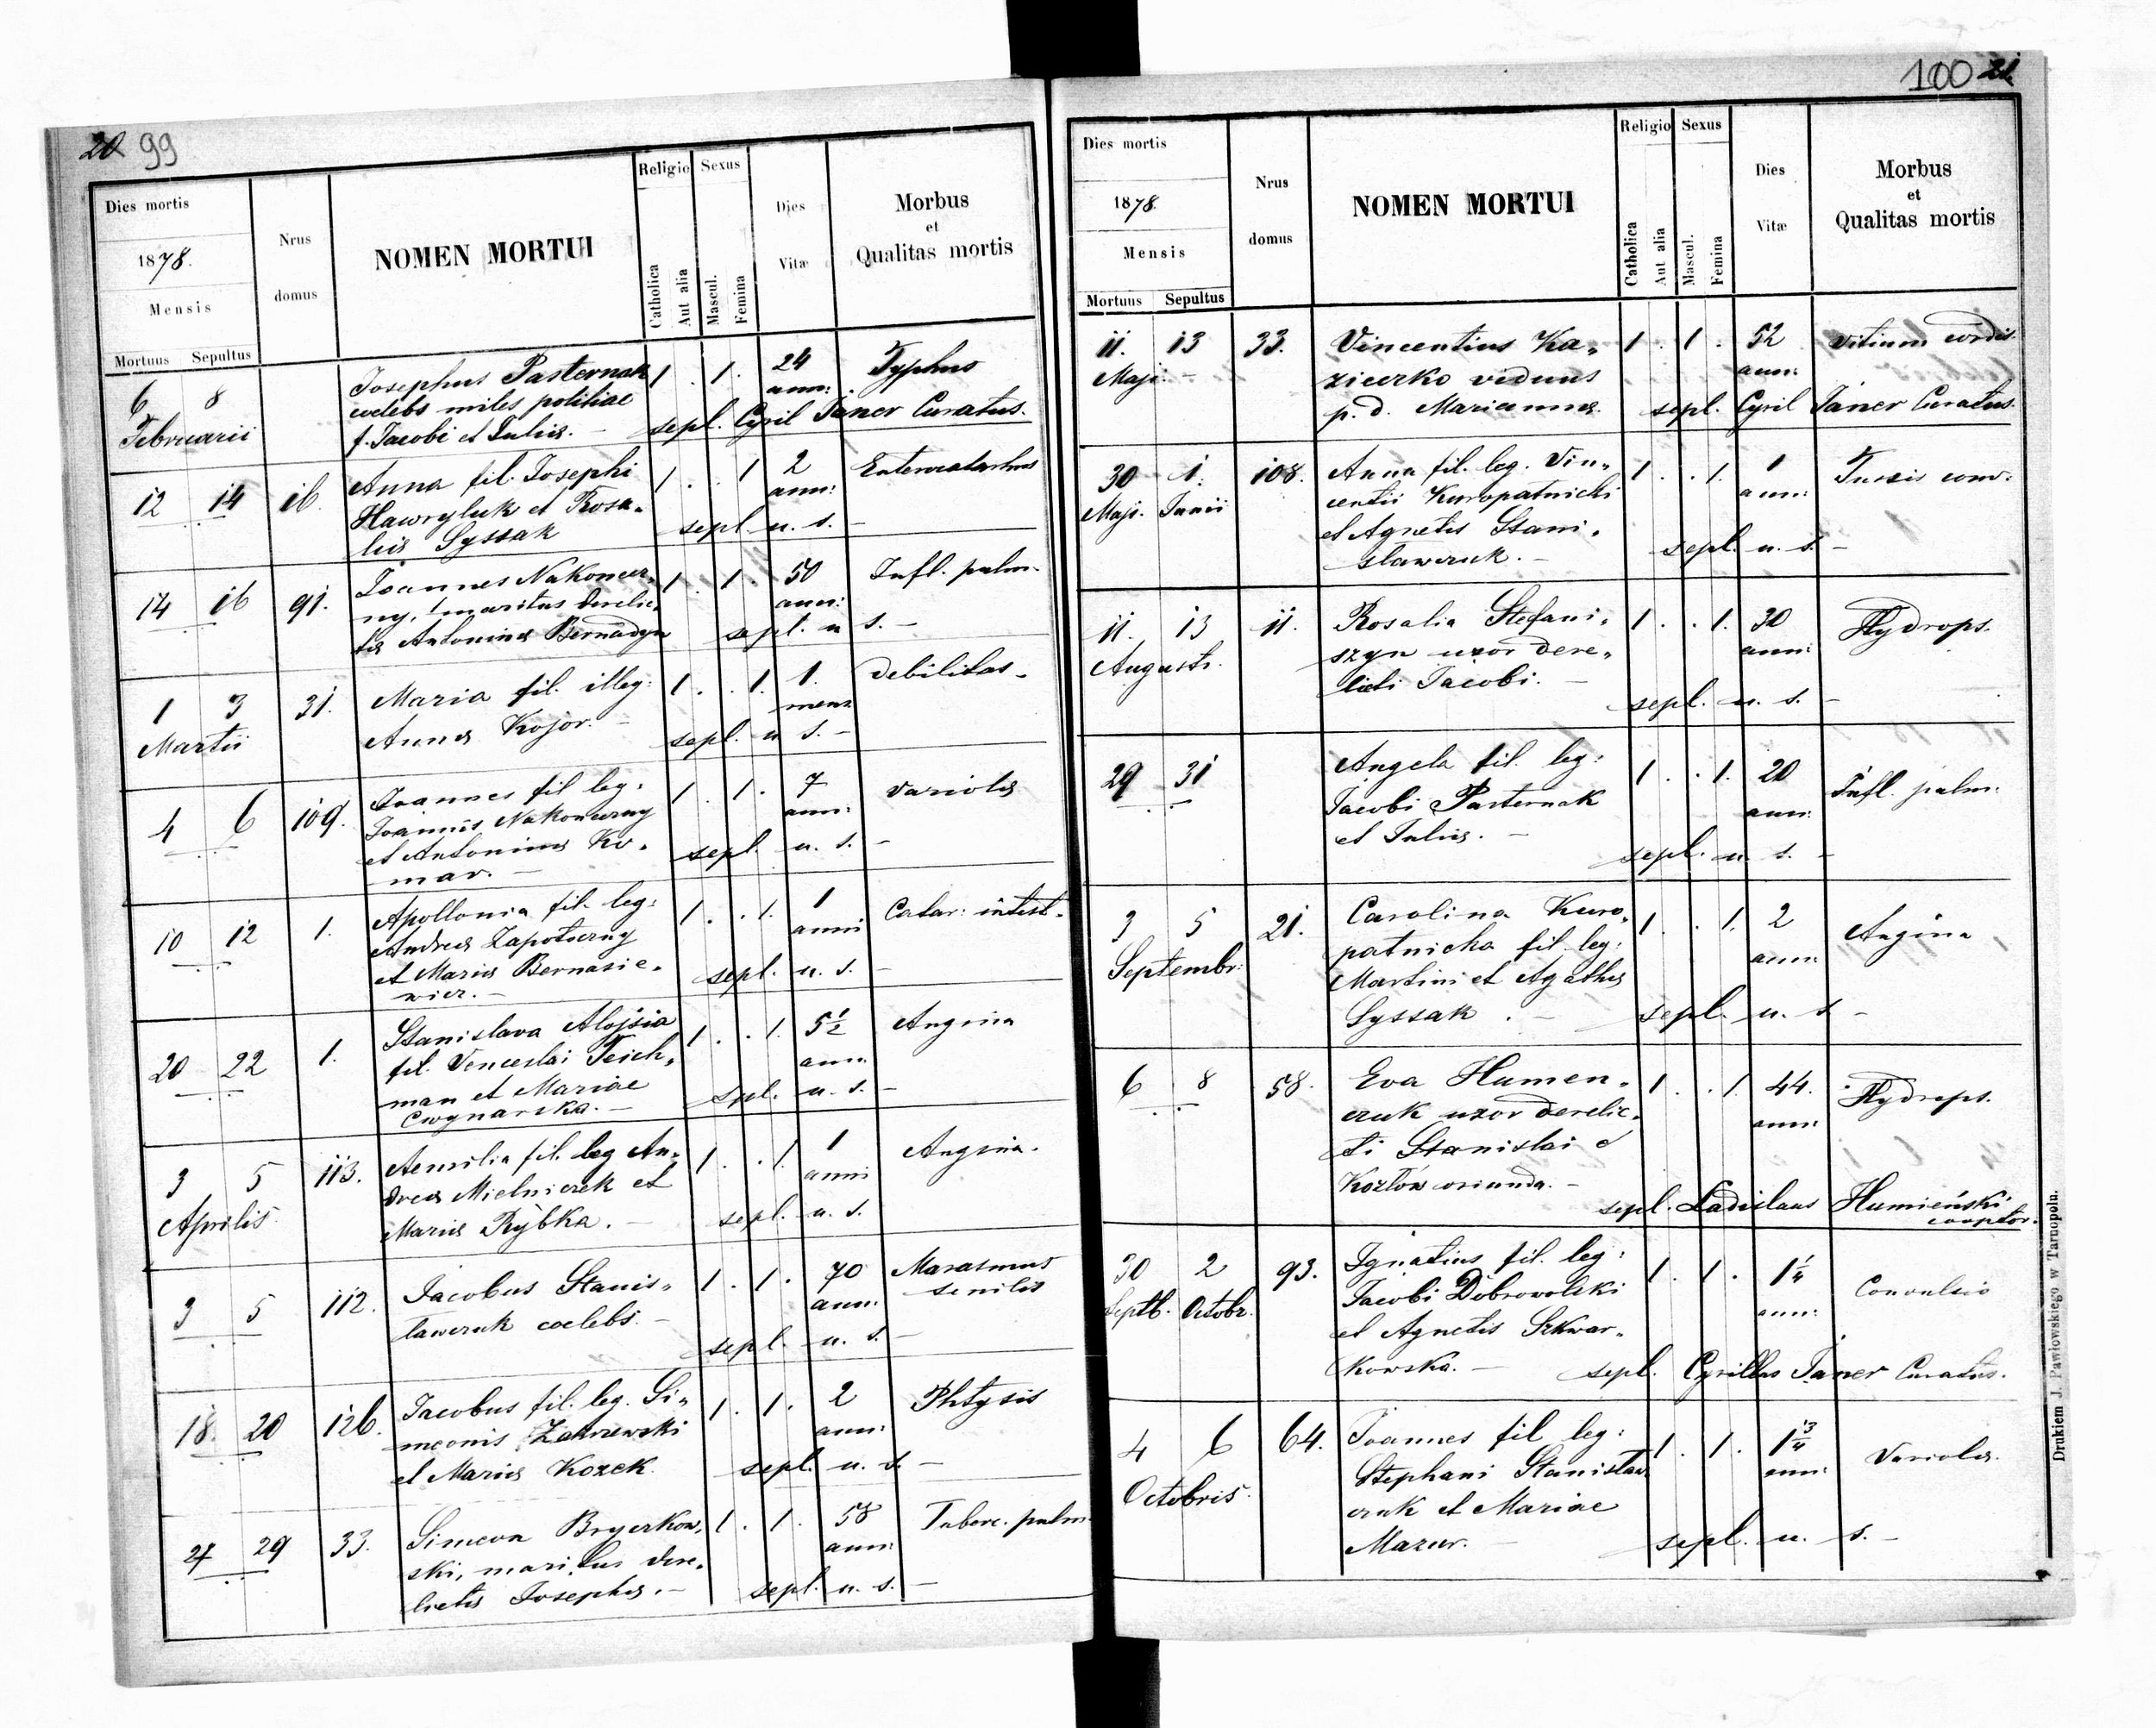 20 99
Dies mortis
1878.
Mensis
Mortuus Sepultus
Nrus
domus
NOMEN MORTUI
Religio
Catholica
Aut alia
Sexus
Mascul.
Femina
Dies
Vitæ
Morbus
et
Qualitas mortis
6 8 Josephus Pasternak 1 . 1. 24 Typhus
Februarii coelebs miles politiae ann:
f. Jacobi et Juliæ. – sepl. Cyril Janer Curatus.
12 14 16. Anna fil. Josephi 1 . . 1 2 Enterocatarhus
Hawryluk et Rosa„ ann:
liæ Syssak sepl. u. s. –
14 16 91. Joannes Nakonecz„ 1. 1. 50 Infl. pulm.
ny, maritus derelic„ ann:
tæ Antoninæ Bernadyn sepl. u s. –
1 3 31. Maria fil. illeg: 1 . . 1. 1. debilitas –
Martii Annæ Kojor. – mens
sepl. u s. –
4 6 109. Joannes fil leg: 1 . 1. 7 variolæ
Joannis Nakoneczny ann:
et Antoninæ Ko„ sepl. u. s. –
mar. –
10 12 1. Apollonia fil. leg: 1 . . 1. 1 Catar: intest.
Andreæ Zapotoczny anni
et Mariæ Bernasie„ sepl. u. s. –
wicz. –
20 22 1. Stanislava Alojsia 1 . . 1. 5 1/2 Angina
fil. Venceslai Teich„ ann.
man et Mariae sepl. u. s. –
Cwynarska. –
3 5 113. Aemilia fil. leg An„ 1 . . 1. 1 Angina.
Aprilis dreæ Mielniczek et anni
Mariæ Rybka. – sepl. u. s.
3 5 112. Jacobus Stanis„ 1 . 1. 70 Marasmus
lawczuk coelebs. – ann. senilis
sepl. u. s. –
18. 20 126. Jacobus fil. leg. Si„ 1 . 1. 2 Phtysis
meonis Zakrzewski ann:
et Mariæ Kozek. sepl. u. s. –
27 29 33. Simeon Bryczkow„ 1 . 1. 58 Taberc. pulm.
ski, maritus dere„ ann:
lictæ Josephæ. – sepl. u. s. –
100 21
Dies mortis
1878.
Mensis
Mortuus Sepultus
Nrus
domus
NOMEN MORTUI
Religio
Catholica
Aut alia
Sexus
Mascul.
Femina
Dies
Vitæ
Morbus
et
Qualitas mortis
11. 13 33. Vincentius Ka„ 1 . 1 . 52 vitium cordis.
Maji. – zieczko viduus ann:
p. d. Mariannæ. sepl. Cyril Janer Curatus.
30 1. 108. Anna fil. leg. Vin„ 1 . . 1. 1 Tussis conv.
Maji. Junii centii Kuropatnicki ann:
et Agnetis Stani„ sepl. u. s. –
slawczuk. –
11. 13 11. Rosalia Stefani„ 1 . . 1. 30 Hydrops.
Augusti. szyn uxor dere„ anni
licti Jacobi. – sepl. u. s. –
29 31 Angela fil. leg: 1 . . 1. 20 Infl. pulm:
Jacobi Pasternak ann:
et Juliæ. – sepl. u. s. –
3 5 21. Carolina Kuro„ 1 . . 1. 2 Angina
Septembr: patnicka fil. leg: ann:
Martini et Agathæ
Syssak . – sepl. u. s –
6 8 58. Eva Humen„ 1 . . 1. 44. Hydrops.
czuk uxor derelic„ ann:
ti Stanislai e
Kozłów oriunda. – sepl. Ladislaus Humieński
cooptor.
30 2 93. Ignatius fil. leg: 1. 1. 1 1/4 Convulsio
Septb. Octobr. Jacobi Dobrowolski ann:
et Agnetis Szkwar„
kowska. – sepl. Cyrillus Janer Curatus.
4 6 64. Joannes fil leg: 1. 1. 1 3/4 Variolæ.
Octobris. Stephani Stanisław anni
czuk et Mariae
Mazur. – sepl. u. s. –
Drukiem J. Pawłowskiego w Tarnopolu.